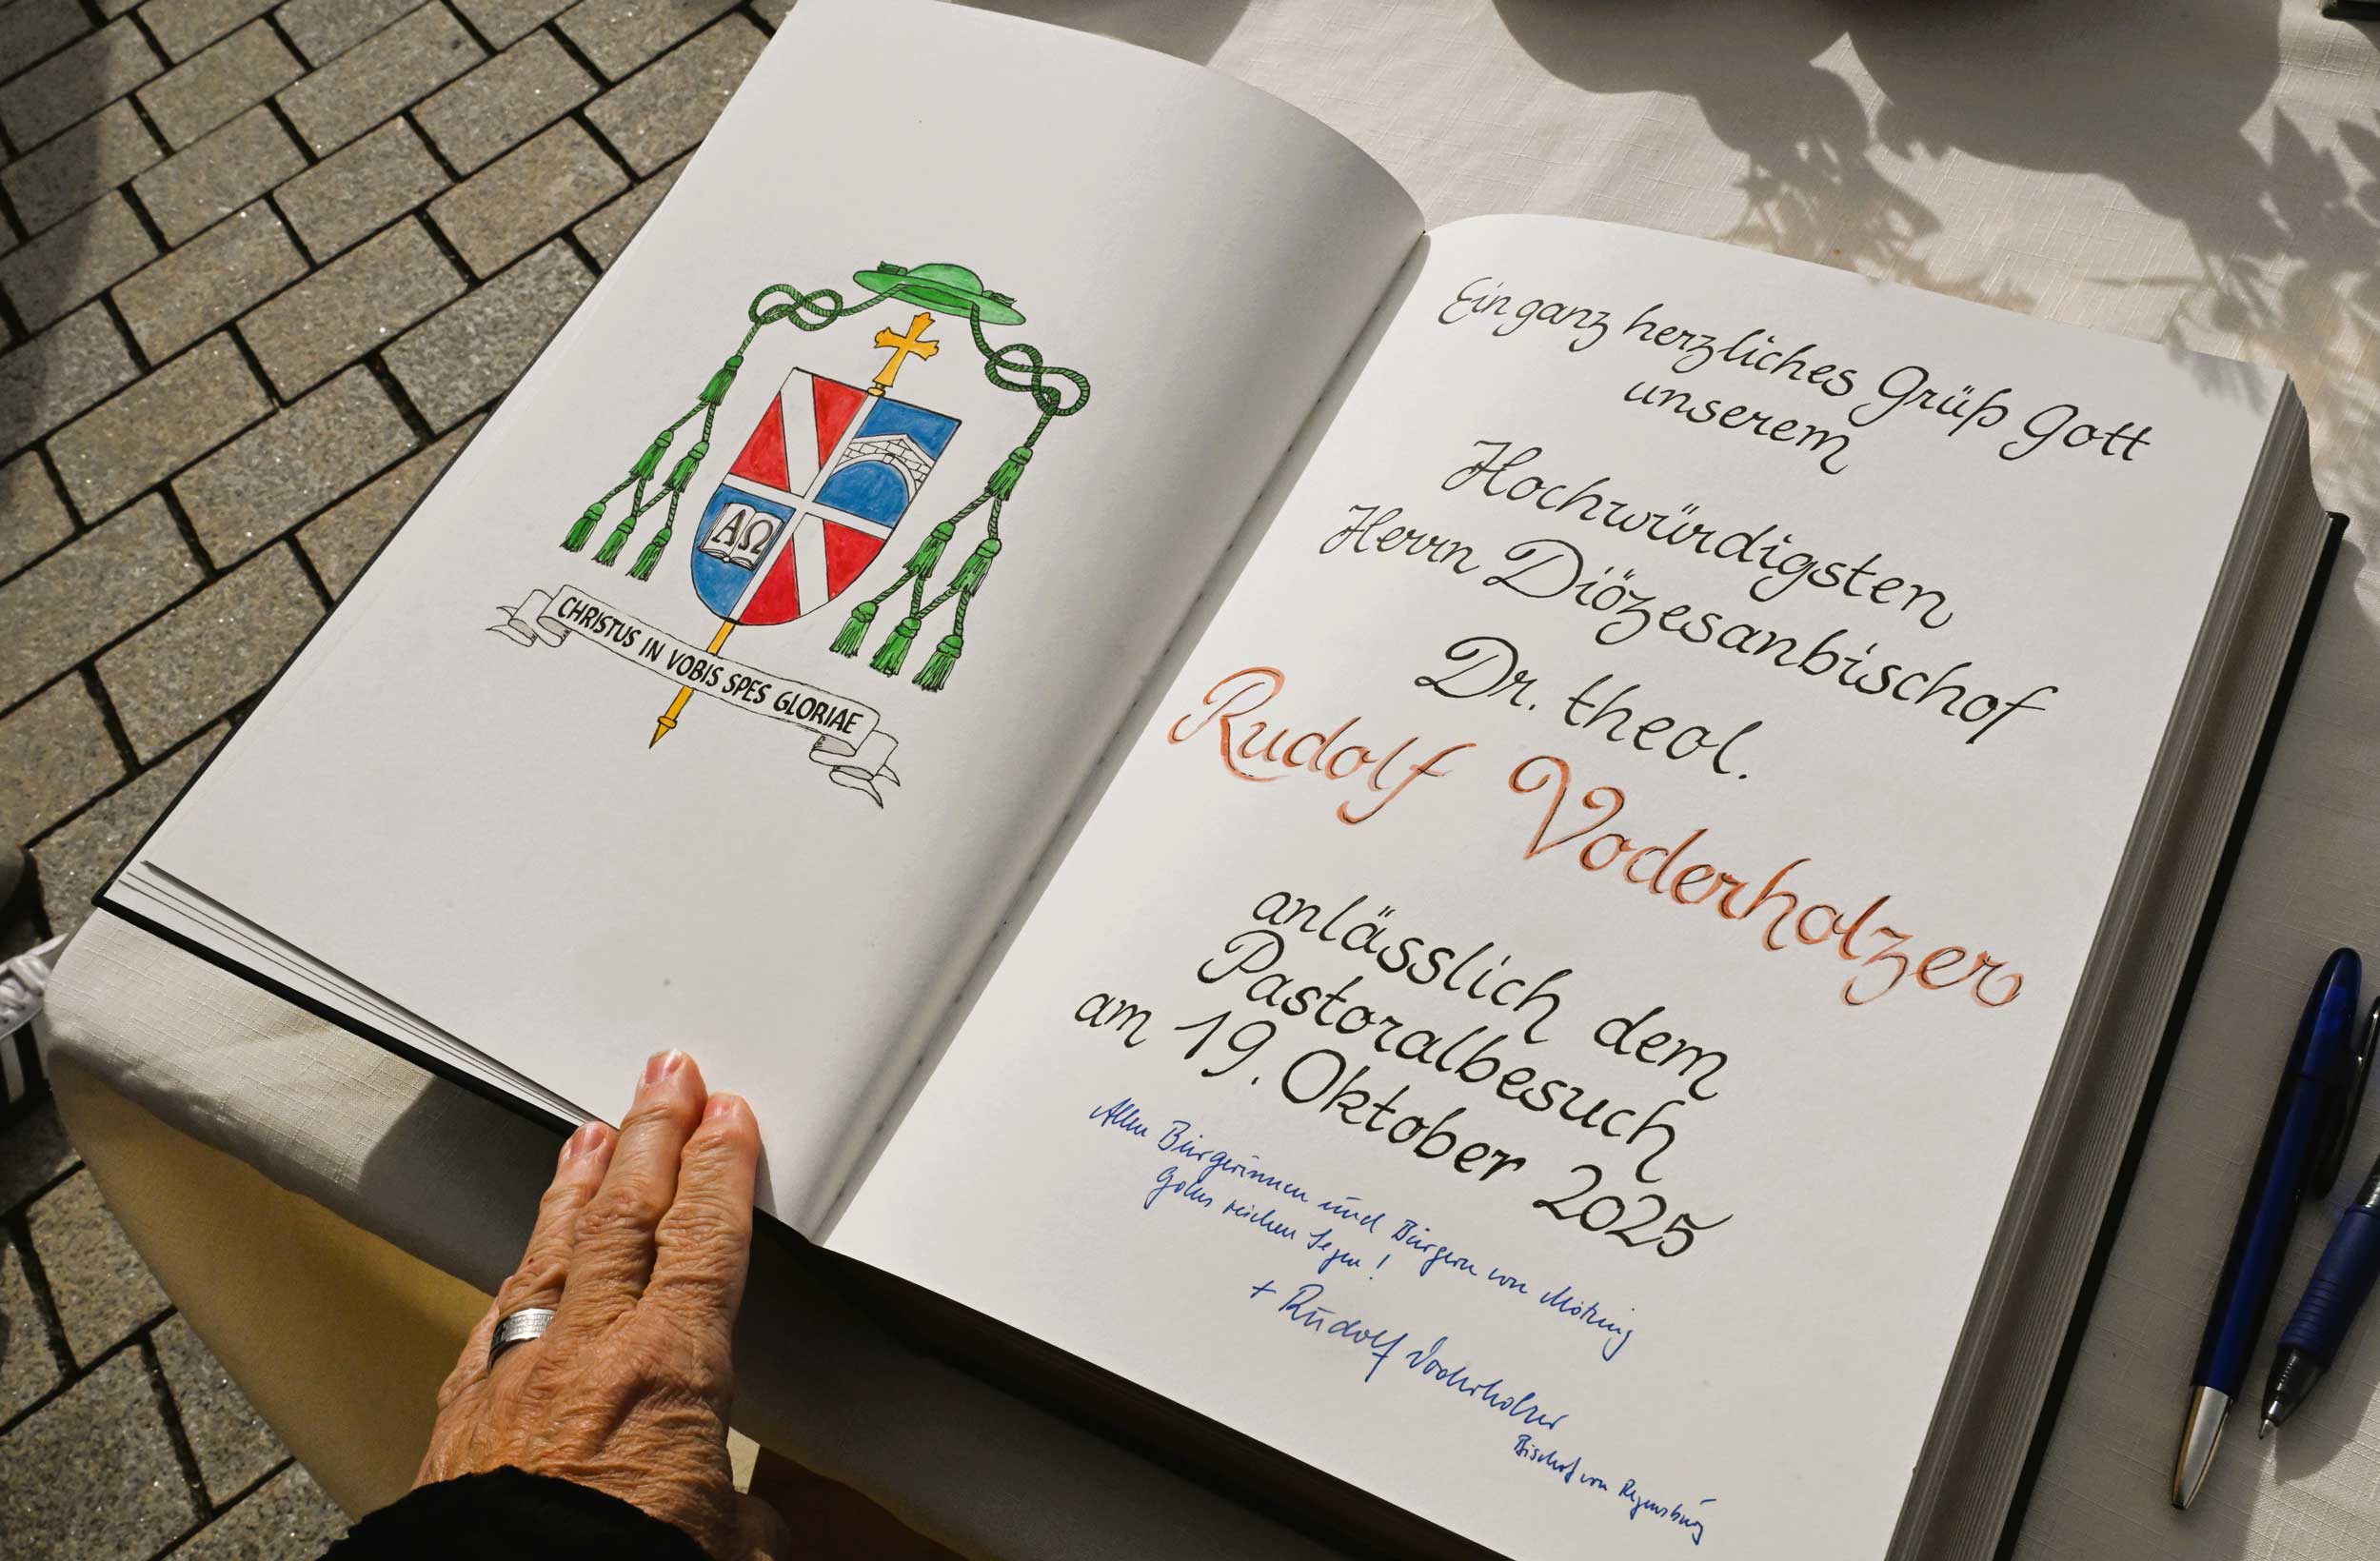 ΑΩ
CHRISTUS IN VOBIS SPES GLORIAE
Ein ganz herzliches Grüß Gott
unserem
Hochwürdigsten
Herrn Diözesanbischof
Dr. theol.
Rudolf Voderholzer
anlässlich dem
Pastoralbesuch
am 19. Oktober 2025
Allen Bürgerinnen und Bürgern von Mötzing
Gottes reichen Segen!
+ Rudolf Voderholzer
Bischof von Regensburg